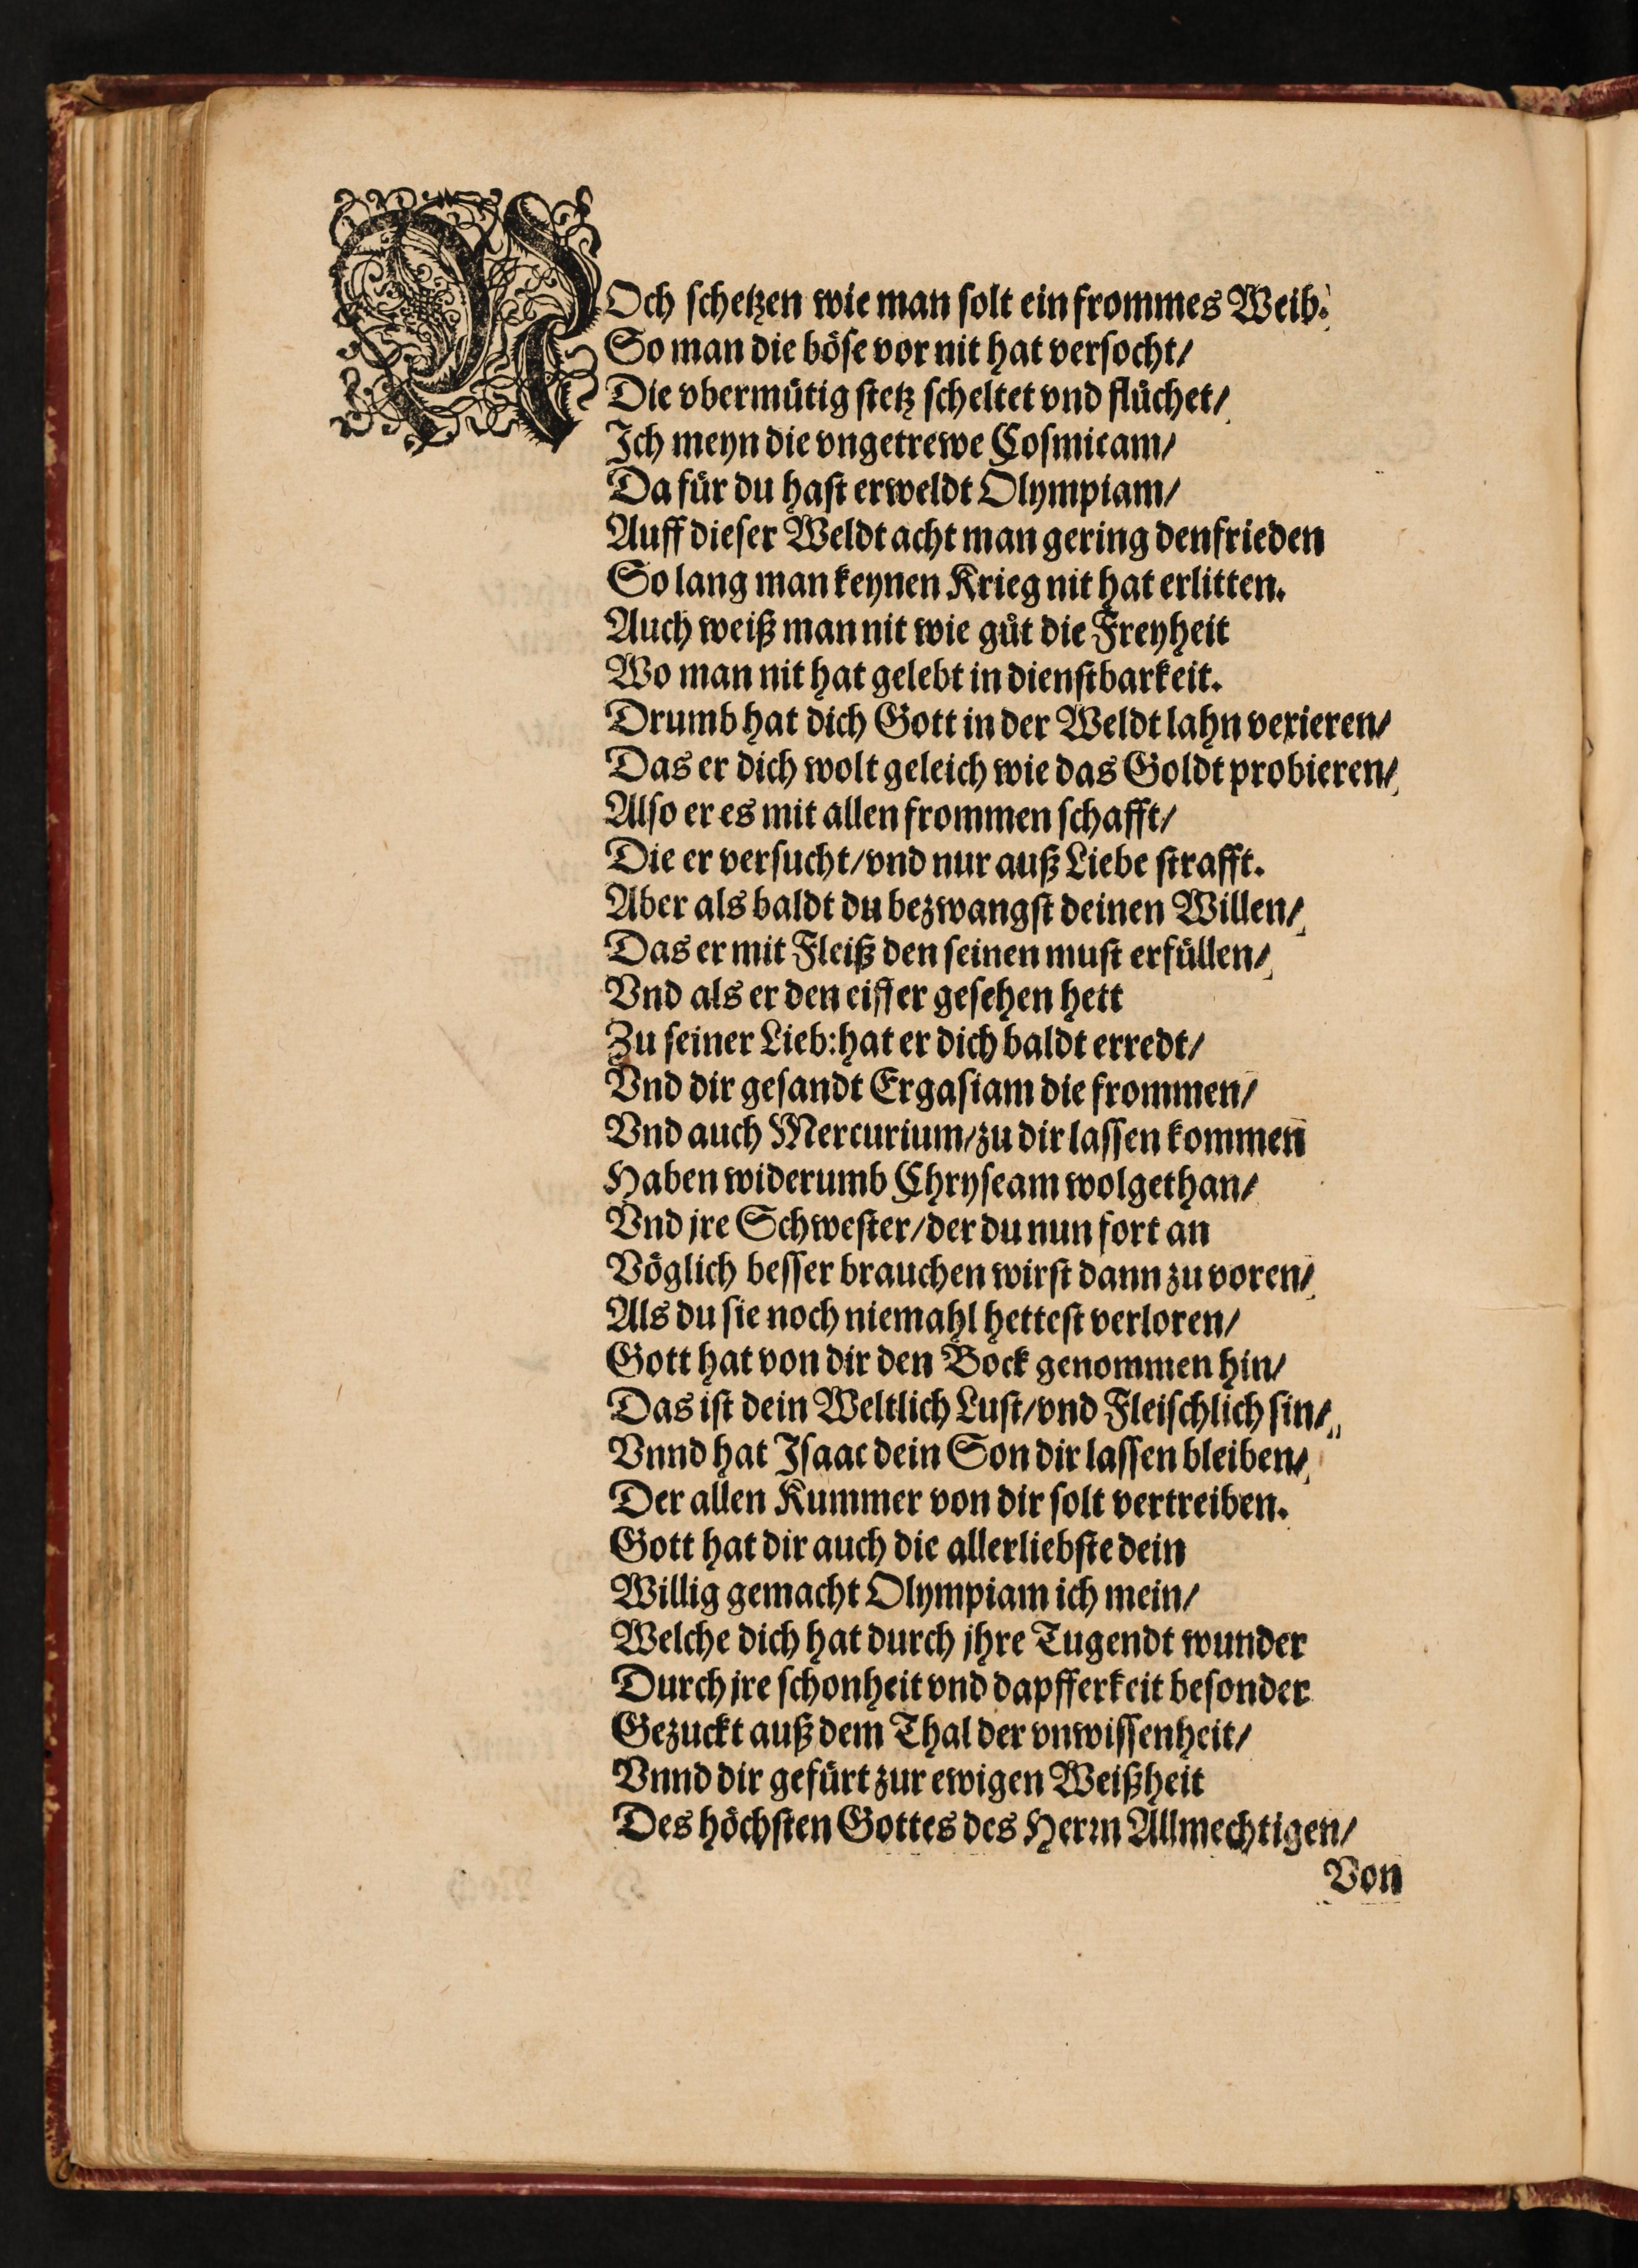 NOch schetzen wie man solt ein frommes Weib.
So man die böse vor nit hat versocht/
Die vbermütig stetz scheltet vnd flůchet/
Ich meyn die vngetrewe Cosmicam/
Da für du hast erweldt Olympiam/
Auff dieser Weldt acht man gering den frieden
So lang man keynen Krieg nit hat erlitten.
Auch weiß man nit wie gůt die Freyheit
Wo man nit hat gelebt in dienstbarkeit.
Drumb hat dich Gott in der Weldt lahn vexieren/
Das er dich wolt geleich wie das Goldt probieren/
Also er es mit allen frommen schafft/
Die er versucht/vnd nur auß Liebe strafft.
Aber als baldt du bezwangst deinen Willen/
Das er mit Fleiß den seinen must erfüllen/
Vnd als er den eiffer gesehen hett
Zu seiner Lieb: hat er dich baldt erredt/
Vnd dir gesandt Ergasiam die frommen/
Vnd auch Mercurium/zu dir lassen kommen
Haben widerumb Chryseam wolgethan/
Vnd jre Schwester/der du nun fort an
Vöglich besser brauchen wirst dann zu voren/
Als du sie noch niemahl hettest verloren/
Gott hat von dir den Bock genommen hin/
Das ist dein Weltlich Lust/vnd Fleischlich sin/
Vnnd hat Isaac dein Son dir lassen bleiben/
Der allen Kummer von dir solt vertreiben.
Gott hat dir auch die allerliebste dein
Willig gemacht Olympiam ich mein/
Welche dich hat durch jhre Tugendt wunder
Durch jre schonheit vnd dapfferkeit besonder
Gezuckt auß dem Thal der vnwissenheit/
Vnnd dir gefürt zur ewigen Weißheit
Des höchsten Gottes des Herrn Allmechtigen/
Von